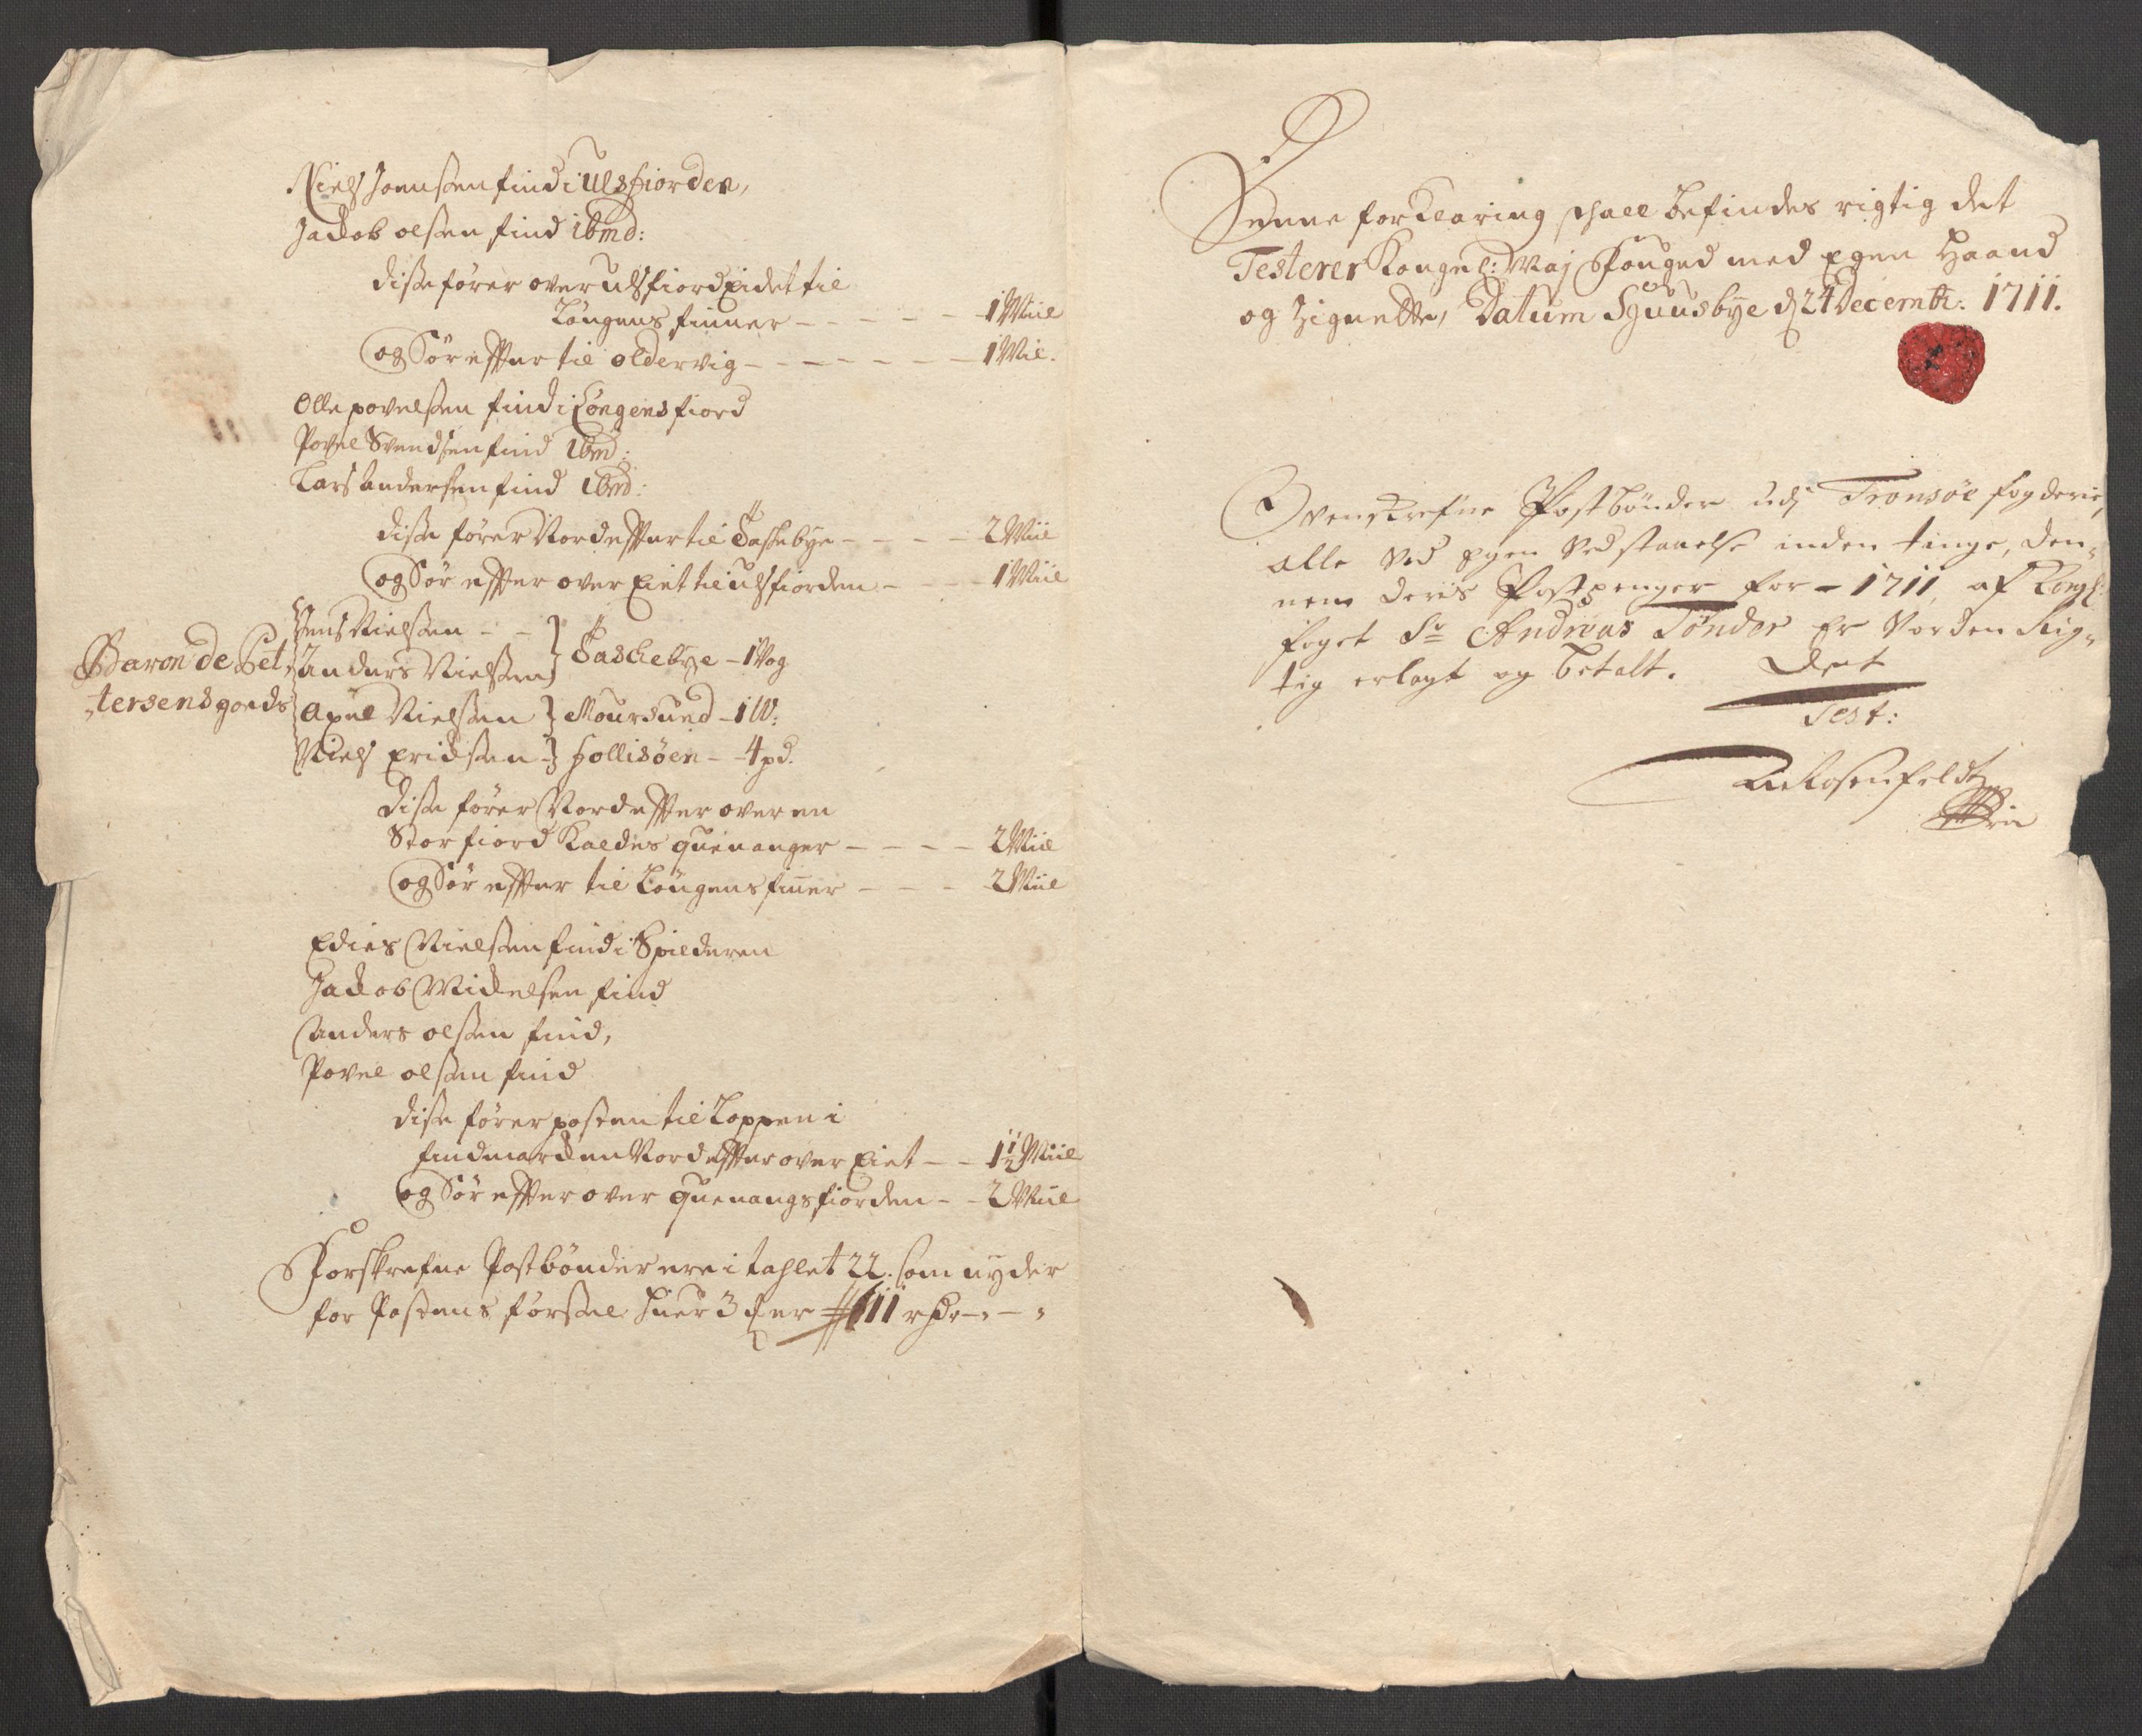 Niels Joensen find i Ulsfiorden,
Jackob olsen find ibmd:
disse fører over ulsfiord Eidet til
Løngens finner — — — — — 1 Miil
og Sør effter til oldervig — — — — — 1 Mil.
Olle povelsen find i Løngens fiord
Povel Svendsen find ibmd:
Lars andersen find ibmd:
disse fører Nord effter til Saschebye — — — 2 Miil
og Sør effter over Eiet til ulsfiorden — — — 1 Miil
Jens Nielsen — —
Baron de Pet-
tersens goeds
anders Nielsen } Saschebye — 1 Vog
Axel Nielsen } Moursund — 1 W:
Niels Ericksen } Hollisøen — 4 pd.
disse fører Nord effter over en
Stor fiord Kaldes quenanger — — — — 2 Miil
og Sør effter til Løngens finner — — — 2 Miil
Edies Nielsen find i Spilderen
Jackob Mickelsen find
anders olsen find,
Povel olsen find
disse fører posten til Loppen i
findmarcken Nord effter over Eiet — — 1½ Miil
og Sør effter over quenangsfiorden — — 2 Miil
Forskrefne Postbønder ere i tahlet 22. som nyder
for Postens førsel huer 3 er 11 rdr — " — "
Denne forklaring schall befindes rigtig det
Testerer Kongel: Maj Fouged med Egen Haand
og Zignette, Datum Sguusbye d 24 Decembr: 1711.
Ovenskrefne Postbønder udj Tromsøe fogderie,
alle ved Egen Vedstaaelse inden tinge, den-
nem deris Postpenger for — 1711, af Kongl:
foget Sr Andreas Tønder Er Vorden Rig-
tig erlagt og betalt. Det
Test:
Rosenfeldt